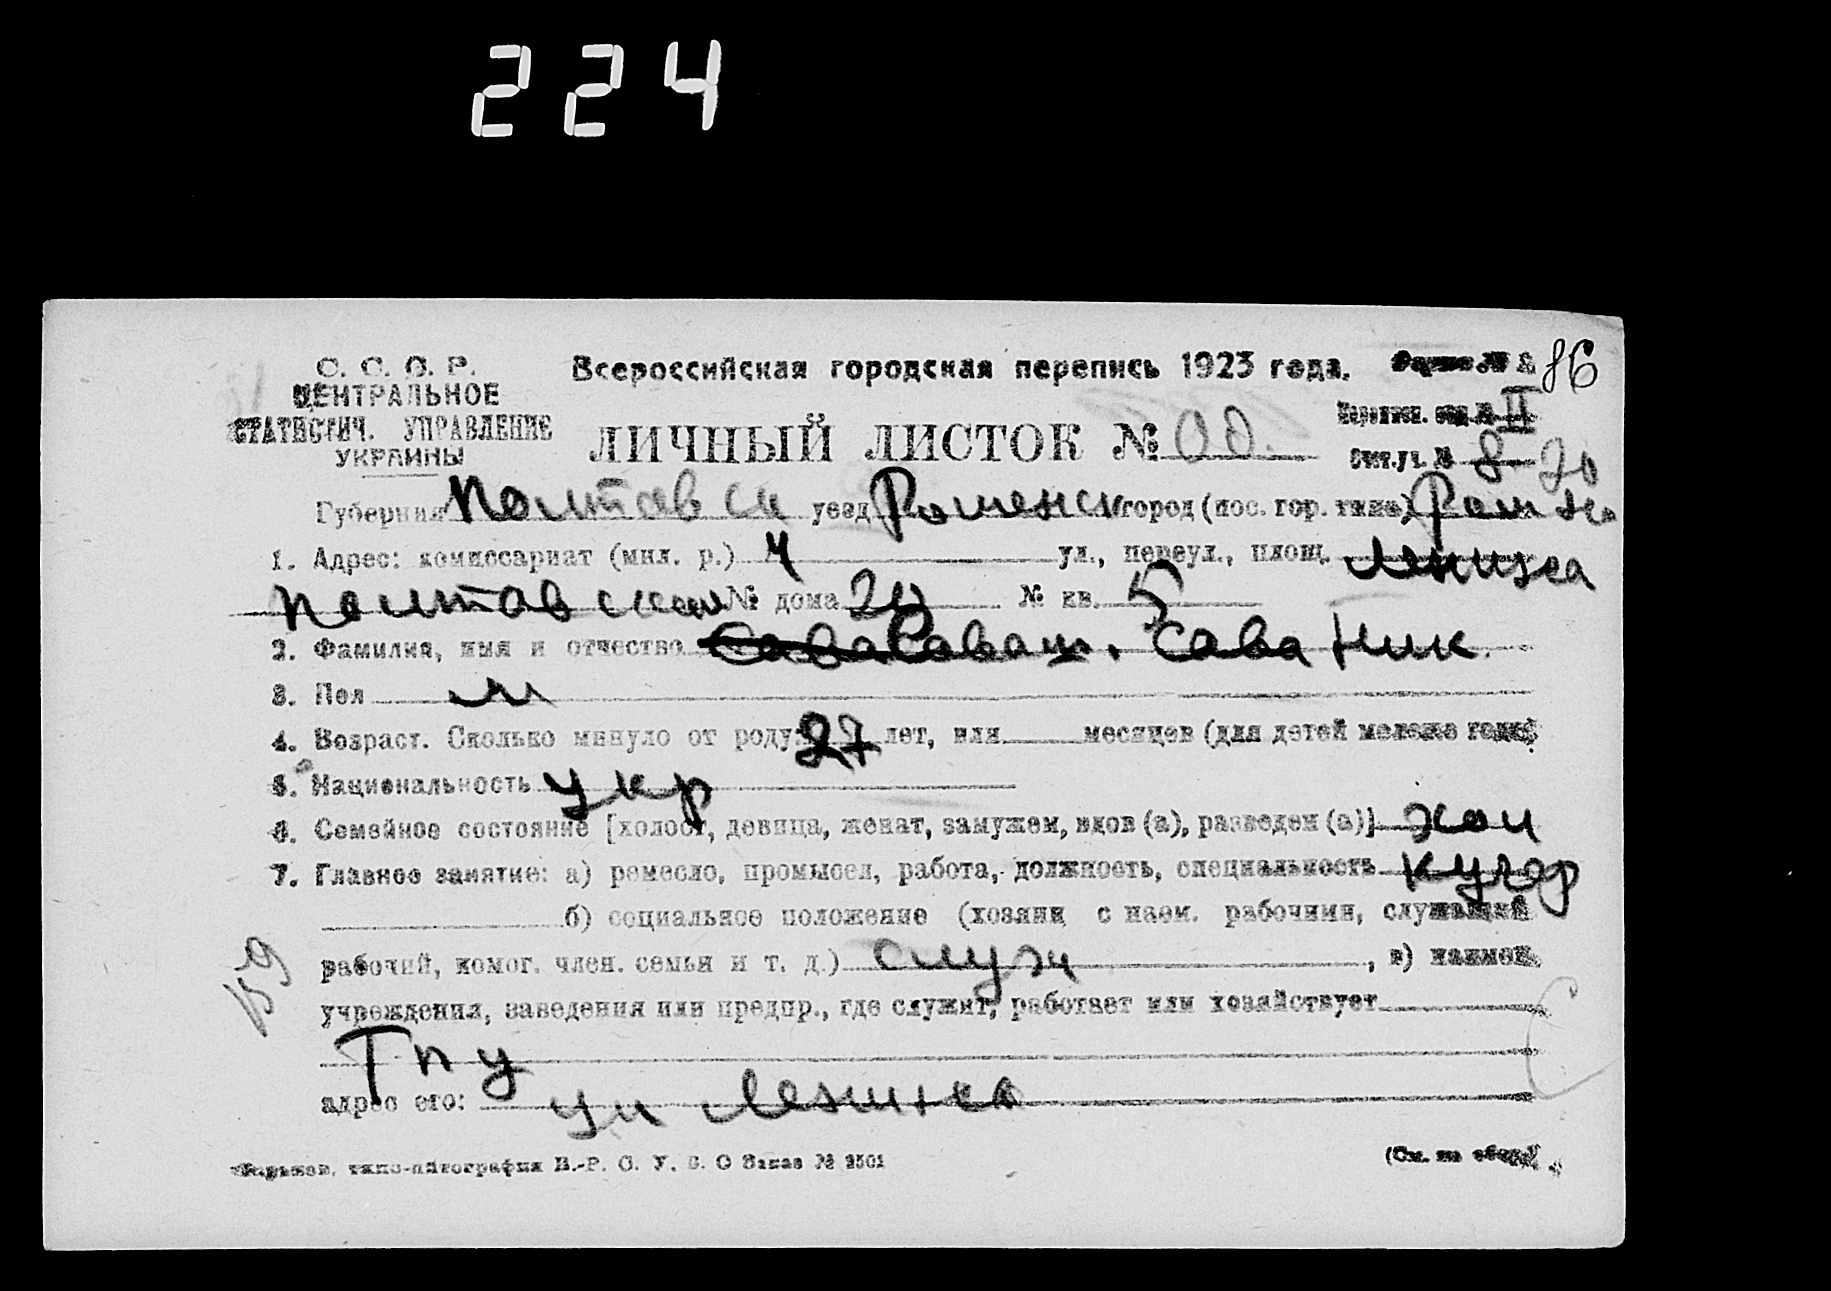 224
С. С. С. Р.
ЦЕНТРАЛЬНОЕ
СТАТИСТИЧ. УПРАВЛЕНИЕ
УКРАИНЫ
Всероссийская городская перепись 1923 года.
Форма № 2 86
ЛИЧНЫЙ ЛИСТОК № 00.
Переписн. отд. № II
Счет.уч. № 8 20
Губерния Полтавск уезд Роменск город (пос. гор. типа) Ромны
1. Адрес: комиссариат (мил. р.) ул., переул., площ. Ленина
Полтавская № дома № кв. 5
2. Фамилия, имя и отчество Сава Ник.
3. Пол м
4. Возраст. Сколько минуло от роду: 27 лет, или месяцев (для детей моложе года)
5. Национальность укр
6. Семейное состояние [холост, девица, женат, замужем, вдов (а), разведен (а)] хол
7. Главное занятие: а) ремесло, промысел, работа, должность, специальность кучер
б) социальное положение (хозяин с наем. рабочими, служащий
рабочий, помог. член. семьи и т. д.) служ , в) наимен.
учреждения, заведения или предпр., где служит, работает или хозяйствует
Гпу
адрес его: ул Ленина
Харьков, типо-литография В.-Р. С. У. В. О Заказ № 2501
(См. на обор.)